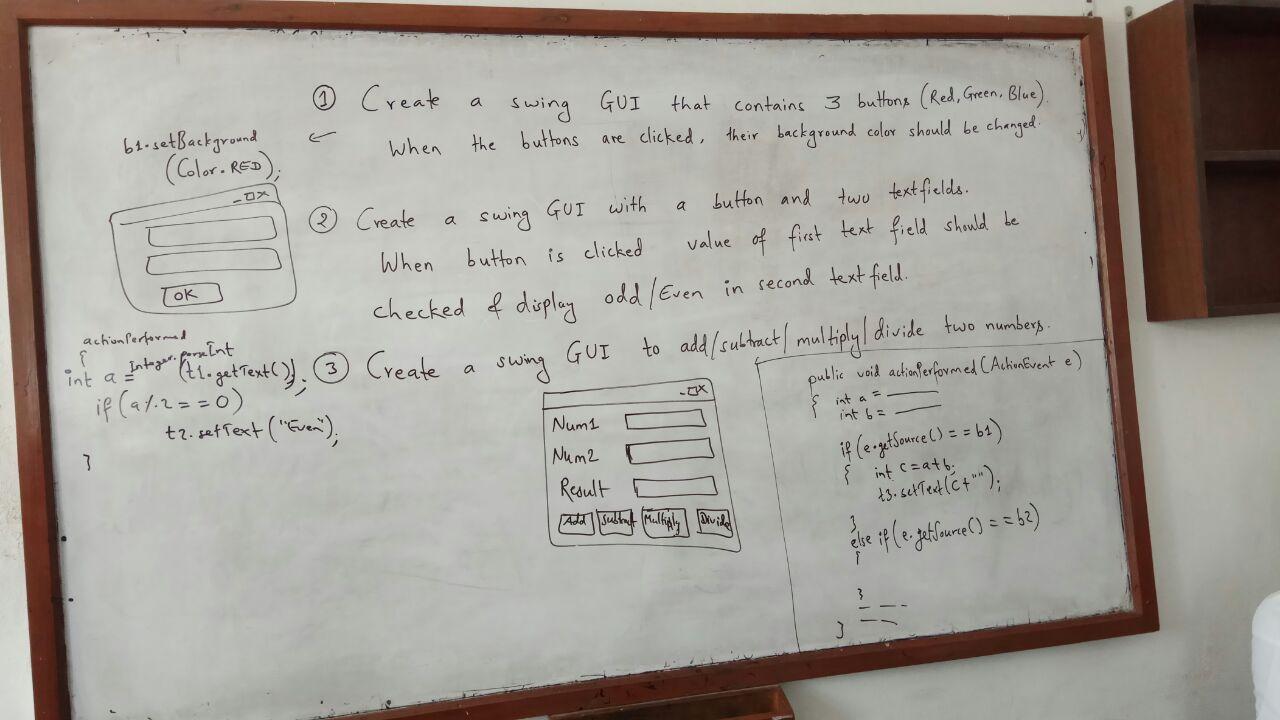 ① Create a swing GUI that contains 3 buttons (Red, Green, Blue).
When the buttons are clicked, their background color should be changed.
b1.setBackground
(Color.RED);
② Create a swing GUI with a button and two textfields.
When button is clicked value of first text field should be
checked & display odd/Even in second textfield.
- □ X
OK
actionPerformed
{
int a = Integer.parseInt (t1.getText());
if (a%2 == 0)
t2.setText ("Even");
}
③ Create a swing GUI to add/subtract/multiply/divide two numbers.
- □ X
Num1
Num2
Result
Add Subtract Multiply Divide
public void actionPerformed (ActionEvent e)
{ int a =
int b =
if (e.getSource() == b1)
{ int c = a+b;
t3.setText (c+"");
}
else if (e.getSource() == b2)
{
}
}